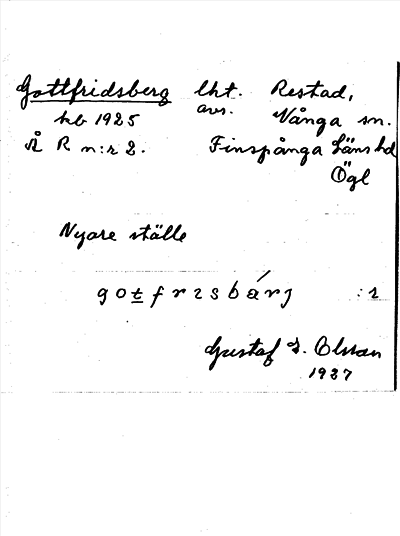 Gottfridsberg lht. Restad,
hb 1925 avs. Vånga sn.
Å R n:r 2. Finspånga Läns hd
Ögl
Nyare ställe
gotfrɪsbárj :ɪ
Gustaf E. Olsson
1937